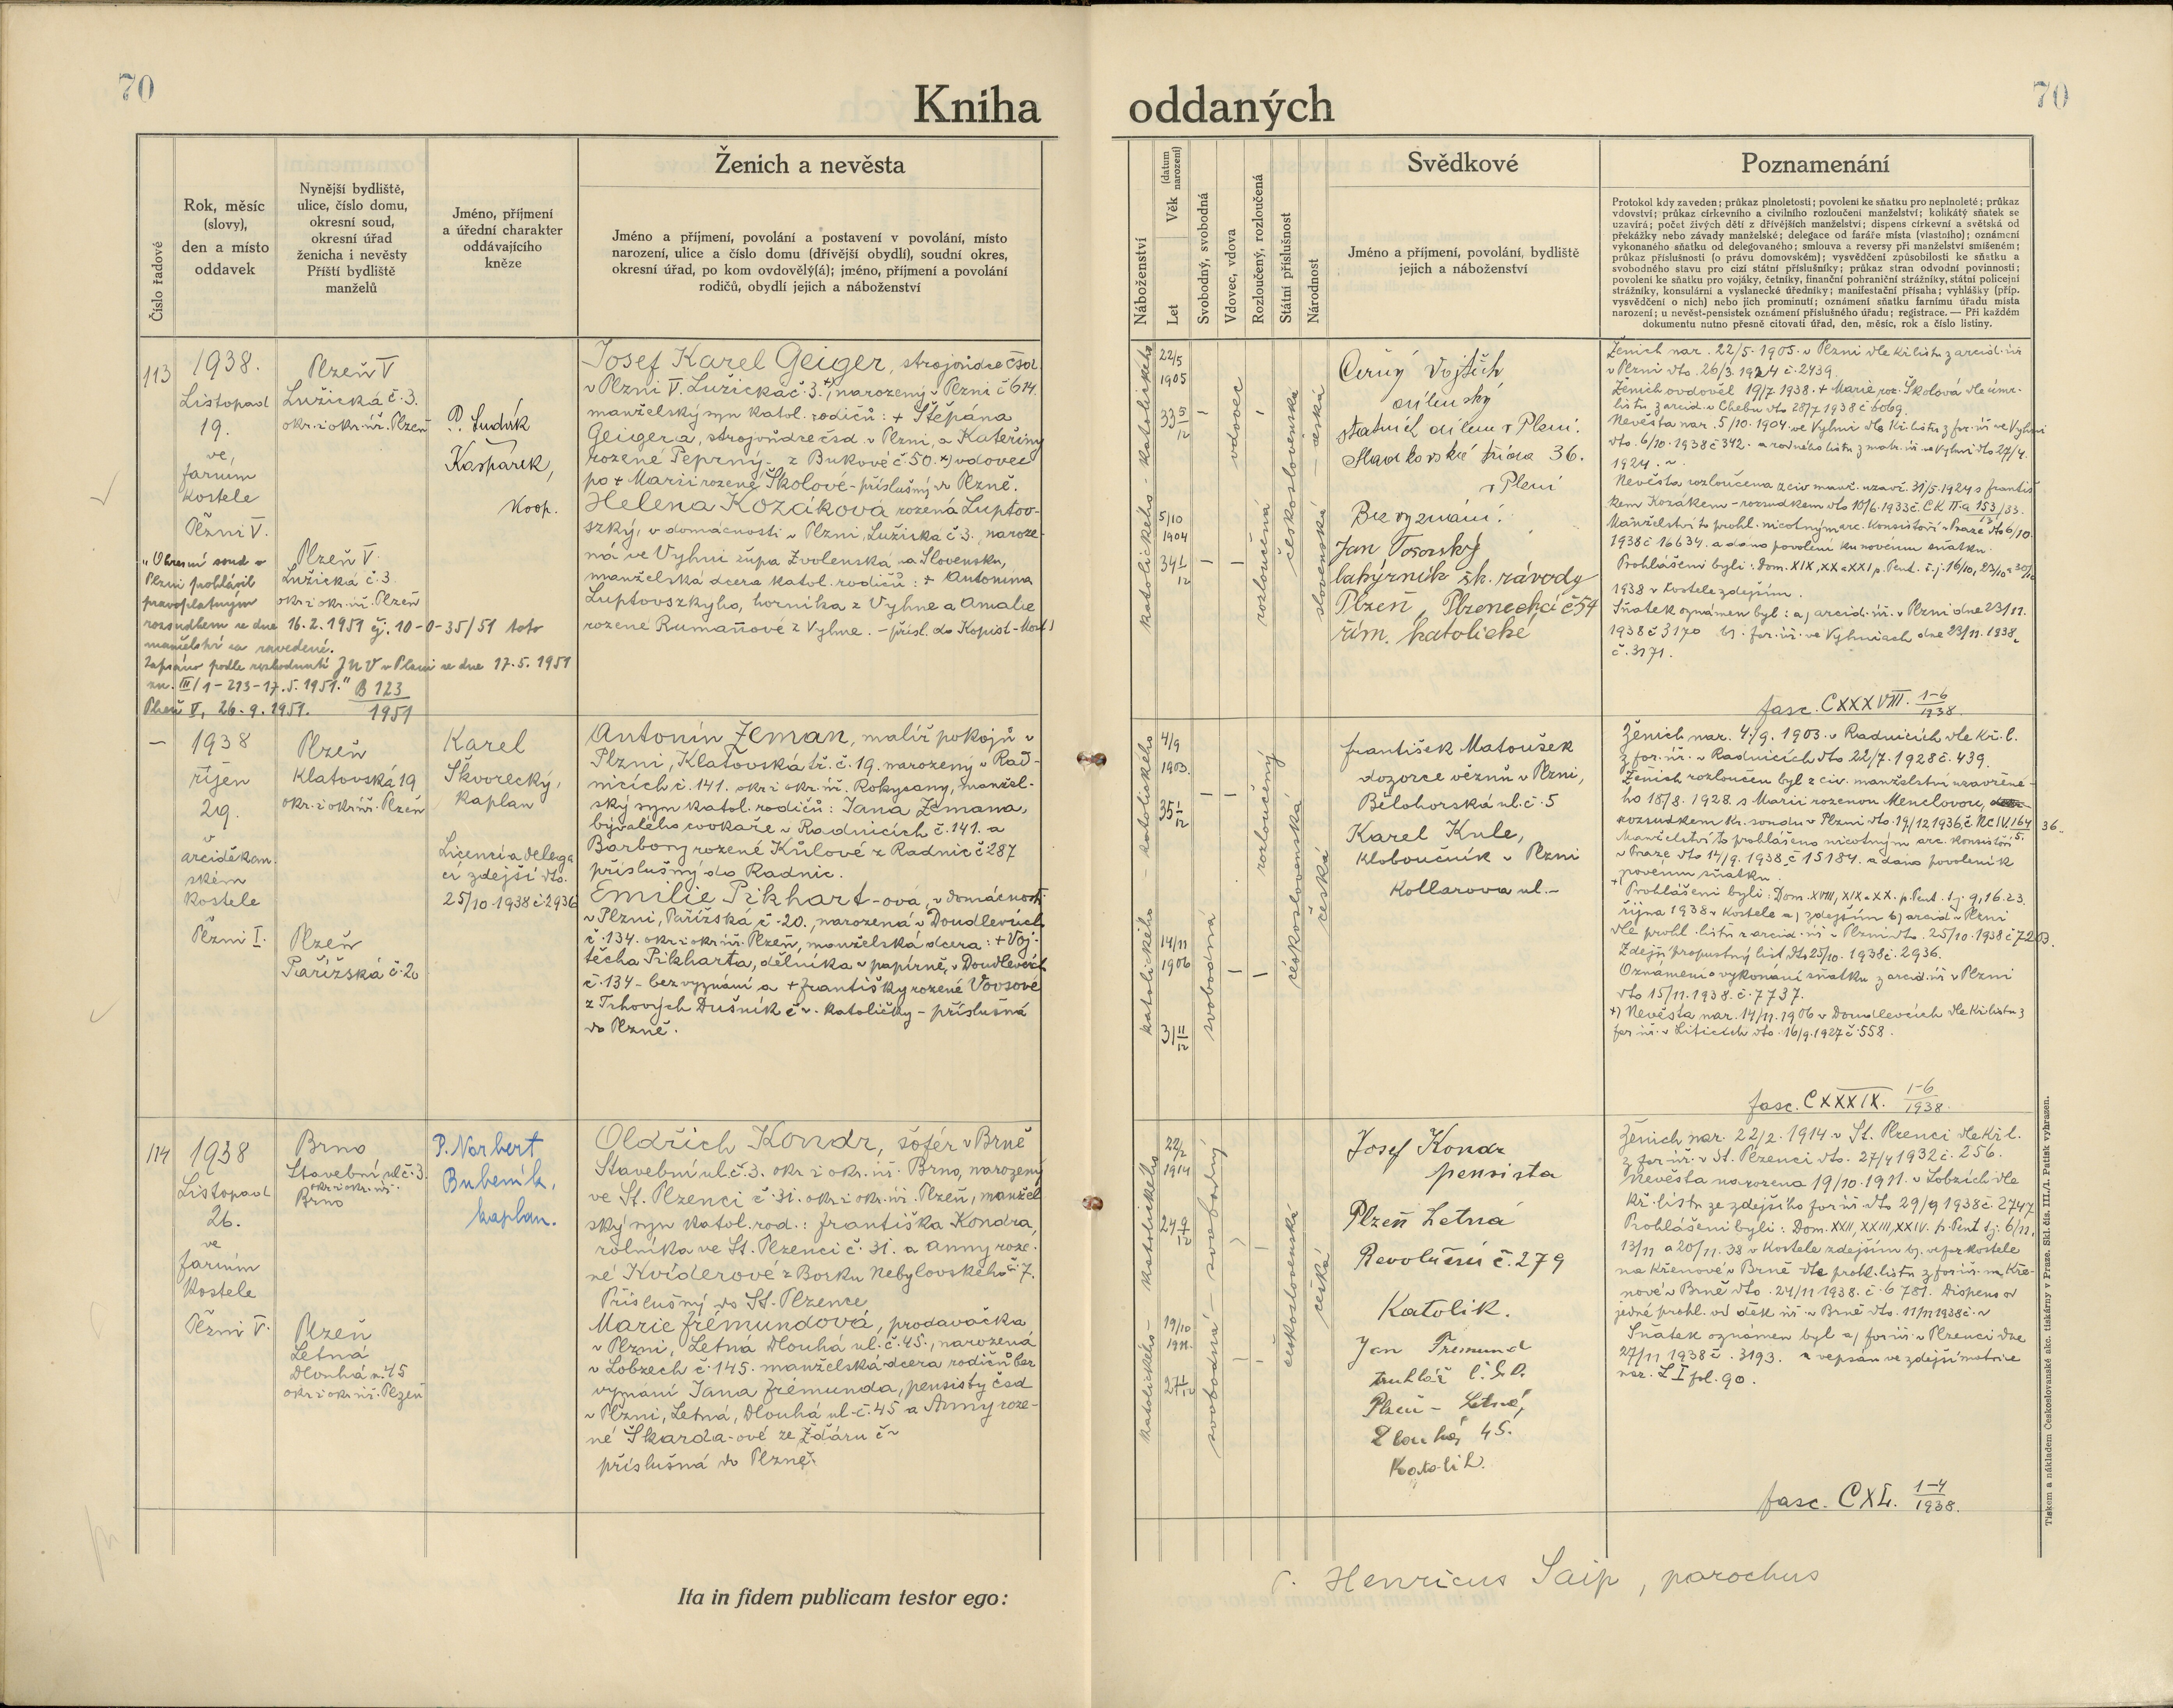 70
Kniha oddaných
70
Číslo řadové
Rok, měsíc
(slovy),
den a místo
oddavek
Nynější bydliště,
ulice, číslo domu,
okresní soud,
okresní úřad
ženicha i nevěsty
Příští bydliště
manželů
Jméno, příjmení
a úřední charakter
oddávajícího
kněze
Ženich a nevěsta
Jméno a příjmení, povolání a postavení v povolání, místo
narození, ulice a číslo domu (dřívější obydlí), soudní okres,
okresní úřad, po kom ovdovělý(á); jméno, příjmení a povolání
rodičů, obydlí jejich a náboženství
Náboženství
Věk (datum narození)
Let
Svobodný, svobodná
Vdovec, vdova
Rozloučený, rozloučená
Státní příslušnost
Národnost
Svědkové
Jméno a příjmení, povolání, bydliště
jejich a náboženství
Poznamenání
Protokol kdy zaveden; průkaz plnoletosti; povolení ke sňatku pro neplnoleté; průkaz
vdovství; průkaz církevního a civilního rozloučení manželství; kolikátý sňatek se
uzavírá; počet živých dětí z dřívějších manželství; dispens církevní a světská od
překážky nebo závady manželské; delegace od faráře místa (vlastního); oznámení
vykonaného sňatku od delegovaného; smlouva a reversy při manželství smíšeném;
průkaz příslušnosti (o právu domovském); vysvědčení způsobilosti ke sňatku a
svobodného stavu pro cizí státní příslušníky; průkaz stran odvodní povinnosti;
povolení ke sňatku pro vojáky, četníky, finanční pohraniční strážníky, státní policejní
strážníky, konsulární a vyslanecké úředníky; manifestační přísaha; vyhlášky (příp.
vysvědčení o nich) nebo jich prominutí; oznámení sňatku farnímu úřadu místa
narození; u nevěst-pensistek oznámení příslušného úřadu; registrace. — Při každém
dokumentu nutno přesně citovati úřad, den, měsíc, rok a číslo listiny.
113
1938.
Listopad
19.
ve
farním
kostele
Plzni V.
Plzeň V
Lužická č. 3.
okr. i okr. úř. Plzeň
Plzeň V.
Lužická č. 3
okr. i okr. úř. Plzeň
P. Ludvík
Kašpárek,
Koop.
"Okresní soud v
Plzni prohlásil
pravoplatným
rozsudkem ze dne 16.2.1951 čj. 10-0-35/51 toto
manželství za rozvedené.
Zapsáno podle rozhodnutí JNV v Plzni ze dne 17.5.1951
zn. III/1-213-17.5.1951." B 123
Plzeň V, 26.9.1951. 1951
Josef Karel Geiger, strojvůdce čsd
v Plzni V. Lužická č. 3. +) narozený v Plzni č 614
manželský syn katol. rodičů: + Štěpána
Geigera, strojvůdce čsd v Plzni, a Kateřiny
rozené Peprný z Bukové č 50. x) vdovec
po + Marii rozené Školové - příslušný do Plzně.
Helena Kozáková rozená Luptov-
szky, v domácnosti v Plzni, Lužická č 3., naroze-
ná ve Vyhni župa Zvolenská na Slovensku,
manželská dcera katol. rodičů: + Antonína
Luptovszkyho, horníka z Vyhne a Amalie
rozené Rumaňové z Vyhne. - přísl. do Kopist - Most)
katolického - katolického
22/5
1905
33 5/12
5/10
1904
34 1/12
vdovec
rozloučená
československá
slovenská - česká
Černý Vojtěch
dílenský
státních dílen v Plzni.
Sladkovského třída 36.
v Plzni
Bez vyznání.
Jan Tosovský
lakýrník šk. závody
Plzeň, Plzenecká č 54
řím. katolické
Ženich nar. 22/5. 1905. v Plzni dle kř. listu z arcid. úř
v Plzni dto. 26/3. 1924 č. 2439.
Ženich ovdověl 19/7 1938. + Marie roz. Školová dle úmr.
listu z arcid. v Chebu dto 28/7 1938 č 6069.
Nevěsta nar. 5/10. 1904. ve Vyhni dle kř. listu z far. úř ve Vyhni
dto. 6/10. 1938 č 342. a rodného listu z matr. úř. ve Vyhni dto 27/4.
1924.
Nevěsta rozloučena z civ. manž. uzavř. 31/5. 1924 s Františ
kem Kozákem - rozsudkem dto 10/6. 1933 č. CK II. a 153/33.
Manželství to prohl. nicotným arc. konsistoří v Praze dto 6/10.
1938 č 16634. a dáno povolení ku novému sňatku.
Prohlášení byli: Dom. XIX, XX a XXI p. Pent. t.j. 16/10, 23/10 a 30/10
1938 v kostele zdejším.
Sňatek oznámen byl: a) arcid. úř. v Plzni dne 23/11.
1938 č 3170 b) far. úř. ve Vyhniach dne 23/11. 1938,
č. 3171.
fasc. CXXXVIII. 1-6/1938.
1938
říjen
29.
v
arciděkan-
ském
kostele
Plzni I.
Plzeň
Klatovská 19
okr. i okr. úř. Plzeň
Plzeň
Pařížská č. 20
Karel
Škvorecký,
kaplan
Licencí a delega
cí zdejší dto.
25/10 1938 č 2936
Antonín Zeman, malíř pokojů v
Plzni, Klatovská tř. č. 19. narozený v Rad-
nicích č. 141. okr. i okr. úř. Rokycany, manžel-
ský syn katol. rodičů: Jana Zemana,
bývalého cvokaře v Radnicích č. 141. a
Barbory rozené Kůlové z Radnic č 287
příslušný do Radnic.
Emilie Pikhart-ová, v domácnosti
v Plzni, Pařížská č. 20., narozená v Doudlevcích
č. 134. okr. i okr. úř. Plzeň, manželská dcera: + Voj-
těcha Pikharta, dělníka v papírně, v Doudlevcích
č. 134 - bez vyznání a + Františky rozené Vovsové
z Trhových Dušník č v. katoličky - příslušná
do Plzně.
katolického - katolického
4/9
1903.
35 1/12
14/11
1906
31 11/12
svobodná
rozloučený
československá
česká
František Matoušek
dozorce vězňů v Plzni,
Bělohorská ul. č. 5
Karel Kule,
kloboučník v Plzni
Kollarova ul. -
Ženich nar. 4/9. 1903. v Radnicích dle kř. l.
z far. úř. v Radnicích dto 22/7. 1928 č. 439.
Ženich rozloučen byl z civ. manželství uzavřené-
ho 18/8. 1928. s Marií rozenou Menclovou,
rozsudkem kr. soudu v Plzni dto. 19/12 1936 č Nc IV. 164/36.
Manželství to prohlášeno nicotným arc. konsistoří
v Praze dto 14/9. 1938 č 15184. a dáno povolení k
novému sňatku.
+ Prohlášeni byli: Dom. XVIII, XIX a XX. p. Pent. t.j. 9, 16. 23.
října 1938 v kostele a) zdejším b) arcid. v Plzni
dle prohl. listu z arcid. úř. v Plzni dto. 25/10. 1938 č 7203.
Zdejší propustný list dto 25/10. 1938 č. 2936.
Oznámení o vykonání sňatku z arcid. úř v Plzni
dto 15/11. 1938. č. 7737.
+) Nevěsta nar. 14/11. 1906 v Doudlevcích dle kř. listu z
far. úř. v Liticích dto. 16/9. 1927 č 558.
fasc. CXXXIX. 1-6/1938.
114
1938
Listopad
26.
ve
farním
kostele
Plzni V.
Brno
Stavební, ul č. 3.
okr. i okr. úř.
Brno
Plzeň
Letná
Dlouhá u. 45
okr. i okr. úř. Plzeň
P. Norbert
Bubeník,
kaplan.
Oldřich Kondr, šofér v Brně
Stavební ul. č. 3. okr. i okr. úř. Brno, narozený
ve St. Plzenci č. 31. okr. i okr. úř. Plzeň, manžel
ský syn katol. rod.: Františka Kondra,
rolníka ve St. Plzenci č. 31. a Anny roze-
né Kviderové z Borku Nebylovského č. 7.
Příslušný do St. Plzence
Marie Frémundová, prodavačka
v Plzni, Letná Dlouhá ul. č. 45., narozená
v Lobzech č. 145. manželská dcera rodičů bez
vyznání Jana Frémunda, pensisty čsd
v Plzni, Letná, Dlouhá ul. č. 45 a Anny roze-
né Škarda-ové ze Žďáru č v
příslušná do Plzně.
katolického - katolického
22/2
1914
24 9/12
19/10
1911.
27 1/12
svobodná - svobodný
československá
česká
Josef Kondr
pensista
Plzeň Letná
Revoluční č. 279
Katolík.
Jan Fremund
truhlář č. s. d.
Plzeň - Letná,
Dlouhá 45.
Katolík.
Ženich nar. 22/2. 1914. v St. Plzenci dle kř. l.
z far. úř. v St. Plzenci dto. 27/4 1932 č. 256.
Nevěsta narozena 19/10. 1911. v Lobzích dle
kř. listu ze zdejšího far. úř. dto 29/9 1938 č. 2747
Prohlášeni byli: Dom. XXII, XXIII, XXIV. p. Pent t.j. 6/11,
13/11 a 20/11. 38 v kostele zdejším b). v far kostele
na Křenové v Brně dle prohl. listu z far. úř. na Kře-
nové v Brně dto. 24/11 1938. č. 6781. Dispens od
jedné prohl. od děk. úř. v Brně dto. 11/11 1938 č. v
Sňatek oznámen byl a) far. úř. v Plzenci dne
27/11 1938 č. 3193. a vepsán ve zdejší matrice
nar. L I fol. 90.
fasc. CXL. 1-4/1938.
Ita in fidem publicam testor ego:
P. Henricus Saip, parochus
Tiskem a nákladem Československé akc. tiskárny v Praze. Skl. čís. III./1. Patisk vyhrazen.